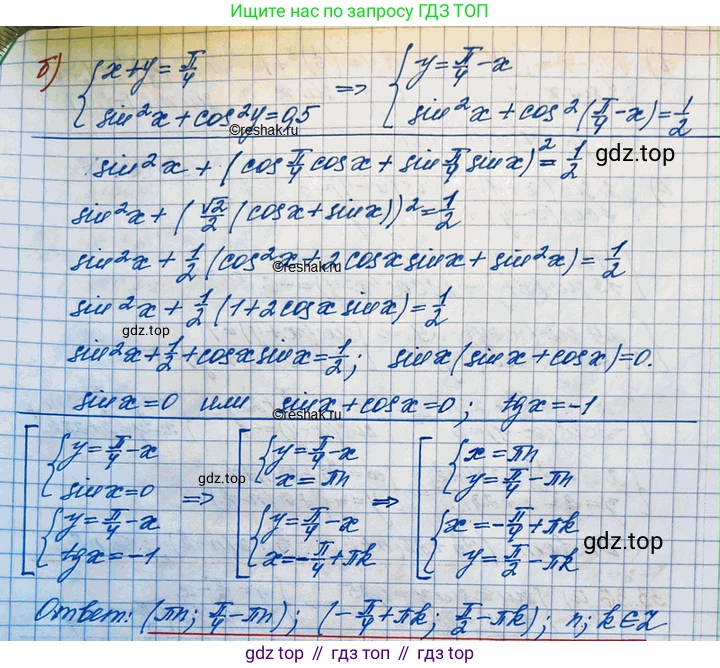 Ищите нас по запросу ГДЗ ТОП
б) { x+y=π/4 => { y=π/4-x
sin²x+cos²y=0,5 sin²x+cos²(π/4-x)=1/2
©reshak.ru
sin²x+(cosπ/4 cosx+sinπ/4 sinx)²=1/2
gdz.top
sin²x+(√2/2(cosx+sinx))²=1/2
sin²x+1/2(cos²x+2cosx sinx+sin²x)=1/2
©reshak.ru
sin²x+1/2(1+2cosx sinx)=1/2
gdz.top
sin²x+1/2+cosx sinx=1/2; sinx(sinx+cosx)=0.
sinx=0 или sinx+cosx=0; tgx=-1
©reshak.ru
[ { y=π/4-x [ { y=π/4-x [ { x=πn
sinx=0 => x=πn => y=π/4-πn
gdz.top
{ y=π/4-x { y=π/4-x { x=-π/4+πk
tgx=-1 x=-π/4+πk y=π/2-πk
gdz.top
Ответ: (πn; π/4-πn); (-π/4+πk; π/2-πk); n; k∈Z
gdz.top // гдз топ // гдз.топ